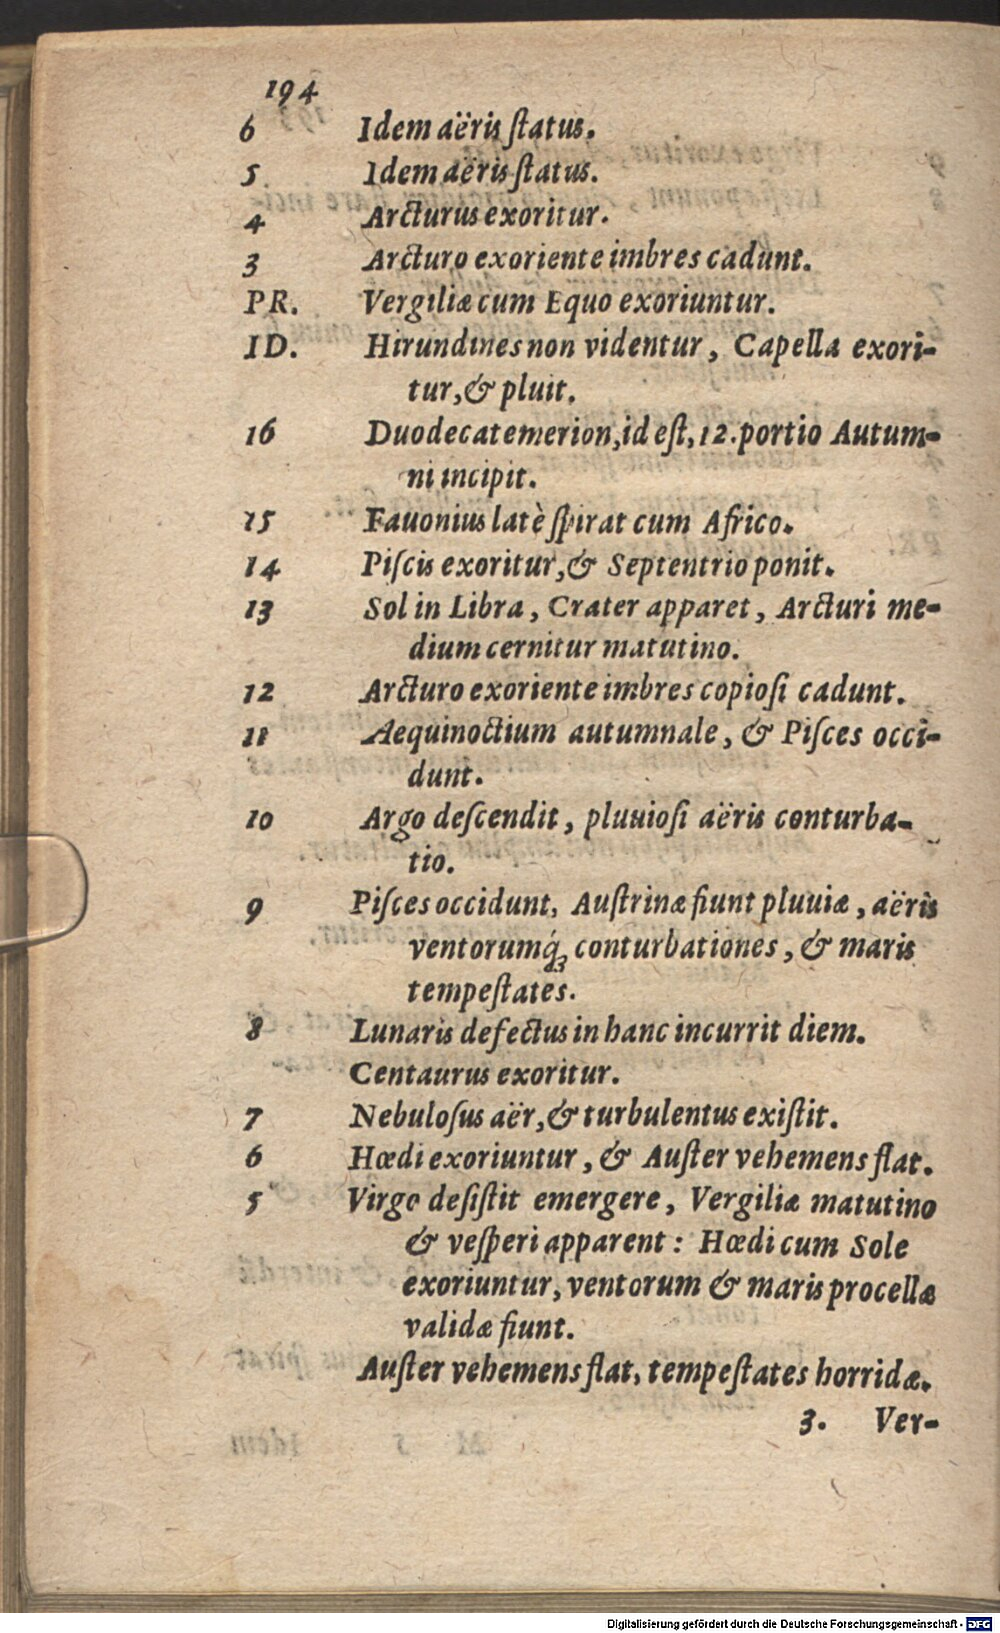 194
6 Idem aëris ſtatus.
5 Idem aëris ſtatus.
4 Arcturus exoritur.
3 Arcturo exoriente imbres cadunt.
PR. Vergiliæ cum Equo exoriuntur.
ID. Hirundines non videntur, Capella exori-
tur, & pluit.
16 Duodecatemerion, id eſt, 12. portio Autum-
ni incipit.
15 Fauonius latè ſpirat cum Africo.
14 Piſcis exoritur, & Septentrio ponit.
13 Sol in Libra, Crater apparet, Arcturi me-
dium cernitur matutino.
12 Arcturo exoriente imbres copioſi cadunt.
11 Aequinoctium autumnale, & Piſces occi-
dunt.
10 Argo deſcendit, pluuioſi aëris conturba-
tio.
9 Piſces occidunt, Auſtrinæ fiunt pluuiæ, aëris
ventorumq́; conturbationes, & maris
tempeſtates.
8 Lunaris defectus in hanc incurrit diem.
Centaurus exoritur.
7 Nebuloſus aër, & turbulentus exiſtit.
6 Hœdi exoriuntur, & Auſter vehemens flat.
5 Virgo deſiſtit emergere, Vergiliæ matutino
& veſperi apparent: Hœdi cum Sole
exoriuntur, ventorum & maris procellæ
validæ fiunt.
Auſter vehemens flat, tempeſtates horridæ.
3. Ver-
Digitalisierung gefördert durch die Deutsche Forschungsgemeinschaft - DFG